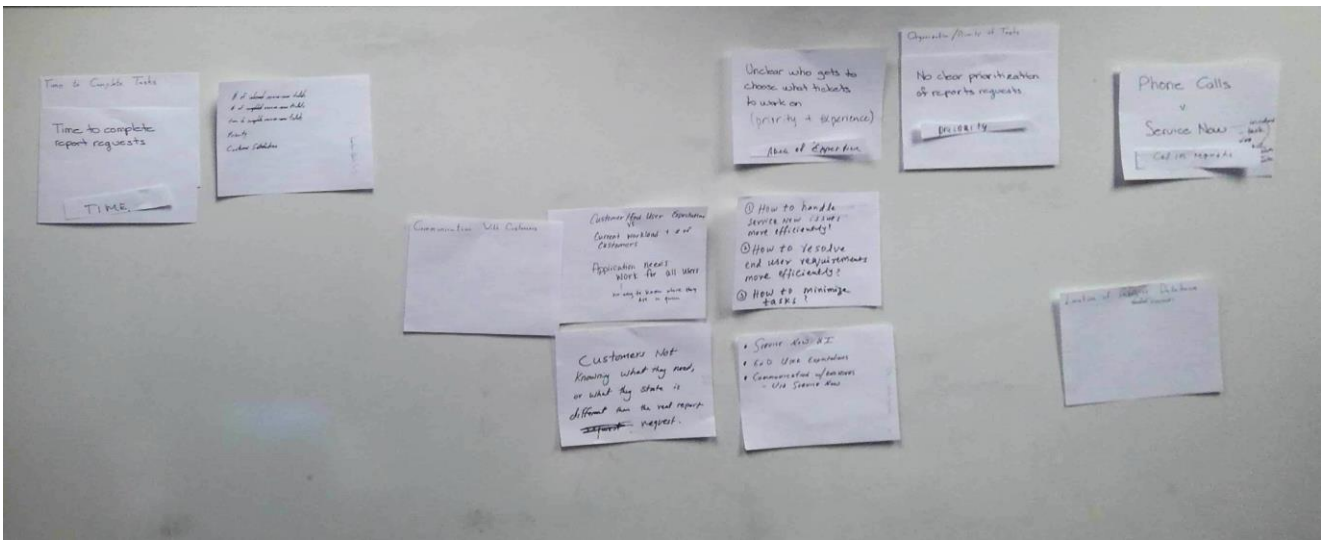 Time to Complete Tasks
Time to complete
report requests
TIME
Priority
Customer Satisfaction
Communication With Customers
Customer/End User Expectations
vs
Current workload + # of
customers
Application needs
work for all users
no way to know where they
are in queue
Customers Not
Knowing what they need,
or what they state is
different than the real report
request.
Unclear who gets to
choose what tickets
to work on
(priority + experience)
Area of Expertise
① How to handle
service now issues
more efficiently?
② How to resolve
end user requirements
more efficiently?
③ How to minimize
tasks?
• Service Now
• End User Expectations
• Communication w/
- Via Service Now
Organization/Priority of Tasks
No clear prioritization
of reports requests
PRIORITY
Phone Calls
v
Service Now
Call in requests
Location of Database